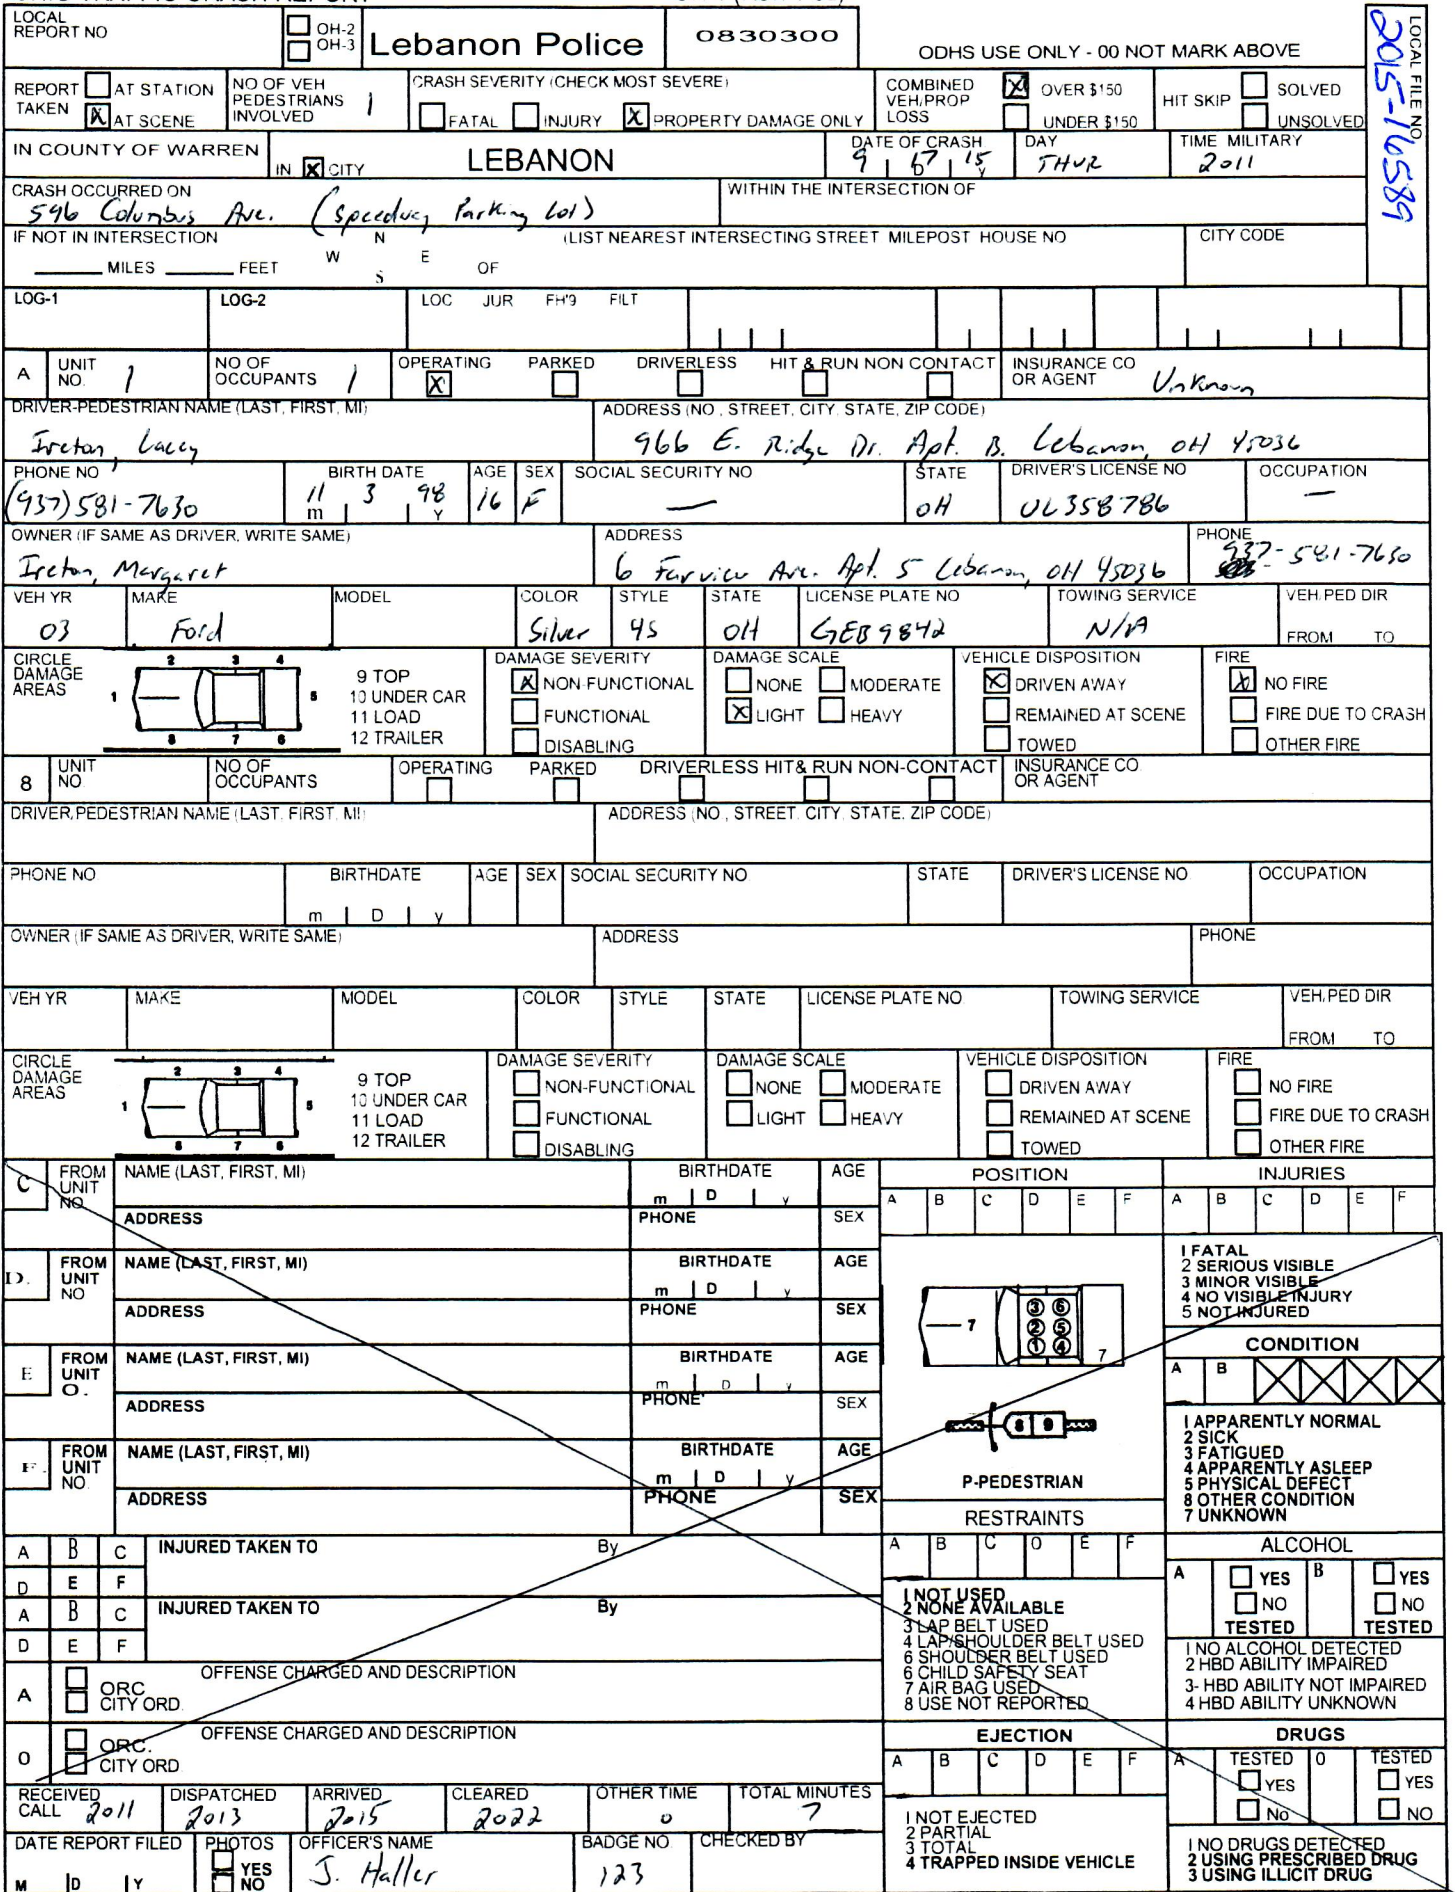 LOCAL REPORT NO
OH-2
OH-3
Lebanon Police
0830300
ODHS USE ONLY - 00 NOT MARK ABOVE
LOCAL FILE NO.
2015-16589
REPORT TAKEN
AT STATION
X AT SCENE
NO OF VEH PEDESTRIANS INVOLVED 1
CRASH SEVERITY (CHECK MOST SEVERE)
FATAL INJURY X PROPERTY DAMAGE ONLY
COMBINED VEH/PROP LOSS
X OVER $150
UNDER $150
HIT SKIP
SOLVED
UNSOLVED
IN COUNTY OF WARREN
IN X CITY
LEBANON
DATE OF CRASH
9 17 15
DAY
THUR
TIME MILITARY
2011
CRASH OCCURRED ON
596 Columbus Ave. (Speedway Parking Lot)
WITHIN THE INTERSECTION OF
IF NOT IN INTERSECTION
MILES FEET
N
W E
S
OF
(LIST NEAREST INTERSECTING STREET MILEPOST HOUSE NO
CITY CODE
LOG-1
LOG-2
LOC JUR FH'9 FILT
A
UNIT NO. 1
NO OF OCCUPANTS 1
OPERATING X PARKED DRIVERLESS HIT & RUN NON CONTACT
INSURANCE CO OR AGENT
Unknown
DRIVER-PEDESTRIAN NAME (LAST, FIRST, MI)
Ireton, Lacey
ADDRESS (NO , STREET, CITY, STATE, ZIP CODE)
966 E. Ridge Dr. Apt. B. Lebanon, OH 45036
PHONE NO
(937)581-7630
BIRTH DATE
11 3 98
m Y
AGE
16
SEX
F
SOCIAL SECURITY NO
—
STATE
OH
DRIVER'S LICENSE NO
UL358786
OCCUPATION
—
OWNER (IF SAME AS DRIVER, WRITE SAME)
Ireton, Margaret
ADDRESS
6 Fairview Ave. Apt. 5 Lebanon, OH 45036
PHONE
937-581-7630
VEH YR
03
MAKE
Ford
MODEL
COLOR
Silver
STYLE
4S
STATE
OH
LICENSE PLATE NO
GEB9842
TOWING SERVICE
N/A
VEH. PED DIR
FROM TO
CIRCLE DAMAGE AREAS
2 3 4
1 5
8 7 6
9 TOP
10 UNDER CAR
11 LOAD
12 TRAILER
DAMAGE SEVERITY
X NON-FUNCTIONAL
FUNCTIONAL
DISABLING
DAMAGE SCALE
NONE MODERATE
X LIGHT HEAVY
VEHICLE DISPOSITION
X DRIVEN AWAY
REMAINED AT SCENE
TOWED
FIRE
X NO FIRE
FIRE DUE TO CRASH
OTHER FIRE
8
UNIT NO
NO OF OCCUPANTS
OPERATING PARKED DRIVERLESS HIT& RUN NON-CONTACT
INSURANCE CO. OR AGENT
DRIVER, PEDESTRIAN NAME (LAST, FIRST, MI)
ADDRESS (NO , STREET, CITY, STATE, ZIP CODE)
PHONE NO
BIRTHDATE
m D y
AGE
SEX
SOCIAL SECURITY NO
STATE
DRIVER'S LICENSE NO
OCCUPATION
OWNER (IF SAME AS DRIVER, WRITE SAME)
ADDRESS
PHONE
VEH YR
MAKE
MODEL
COLOR
STYLE
STATE
LICENSE PLATE NO
TOWING SERVICE
VEH. PED DIR
FROM TO
CIRCLE DAMAGE AREAS
2 3 4
1 5
8 7 6
9 TOP
10 UNDER CAR
11 LOAD
12 TRAILER
DAMAGE SEVERITY
NON-FUNCTIONAL
FUNCTIONAL
DISABLING
DAMAGE SCALE
NONE MODERATE
LIGHT HEAVY
VEHICLE DISPOSITION
DRIVEN AWAY
REMAINED AT SCENE
TOWED
FIRE
NO FIRE
FIRE DUE TO CRASH
OTHER FIRE
C
FROM UNIT NO.
NAME (LAST, FIRST, MI)
BIRTHDATE
m D y
AGE
ADDRESS
PHONE
SEX
D.
FROM UNIT NO
NAME (LAST, FIRST, MI)
BIRTHDATE
m D y
AGE
ADDRESS
PHONE
SEX
E
FROM UNIT O.
NAME (LAST, FIRST, MI)
BIRTHDATE
m D y
AGE
ADDRESS
PHONE
SEX
F.
FROM UNIT NO.
NAME (LAST, FIRST, MI)
BIRTHDATE
m D y
AGE
ADDRESS
PHONE
SEX
POSITION
A B C D E F
7
3 6
2 5
1 4
7
8 9
P-PEDESTRIAN
INJURIES
A B C D E F
I FATAL
2 SERIOUS VISIBLE
3 MINOR VISIBLE
4 NO VISIBLE INJURY
5 NOT INJURED
CONDITION
A B
I APPARENTLY NORMAL
2 SICK
3 FATIGUED
4 APPARENTLY ASLEEP
5 PHYSICAL DEFECT
8 OTHER CONDITION
7 UNKNOWN
A B C
D E F
INJURED TAKEN TO By
A B C
D E F
INJURED TAKEN TO By
RESTRAINTS
A B C O E F
I NOT USED
2 NONE AVAILABLE
3 LAP BELT USED
4 LAP/SHOULDER BELT USED
6 SHOULDER BELT USED
6 CHILD SAFETY SEAT
7 AIR BAG USED
8 USE NOT REPORTED
ALCOHOL
A YES B YES
NO NO
TESTED TESTED
I NO ALCOHOL DETECTED
2 HBD ABILITY IMPAIRED
3- HBD ABILITY NOT IMPAIRED
4 HBD ABILITY UNKNOWN
A
ORC
CITY ORD.
OFFENSE CHARGED AND DESCRIPTION
O
ORC.
CITY ORD
OFFENSE CHARGED AND DESCRIPTION
EJECTION
A B C D E F
I NOT EJECTED
2 PARTIAL
3 TOTAL
4 TRAPPED INSIDE VEHICLE
DRUGS
A TESTED O TESTED
YES YES
No NO
I NO DRUGS DETECTED
2 USING PRESCRIBED DRUG
3 USING ILLICIT DRUG
RECEIVED CALL 2011
DISPATCHED
2013
ARRIVED
2015
CLEARED
2022
OTHER TIME
0
TOTAL MINUTES
7
DATE REPORT FILED
M D Y
PHOTOS
YES
NO
OFFICER'S NAME
J. Haller
BADGE NO
123
CHECKED BY